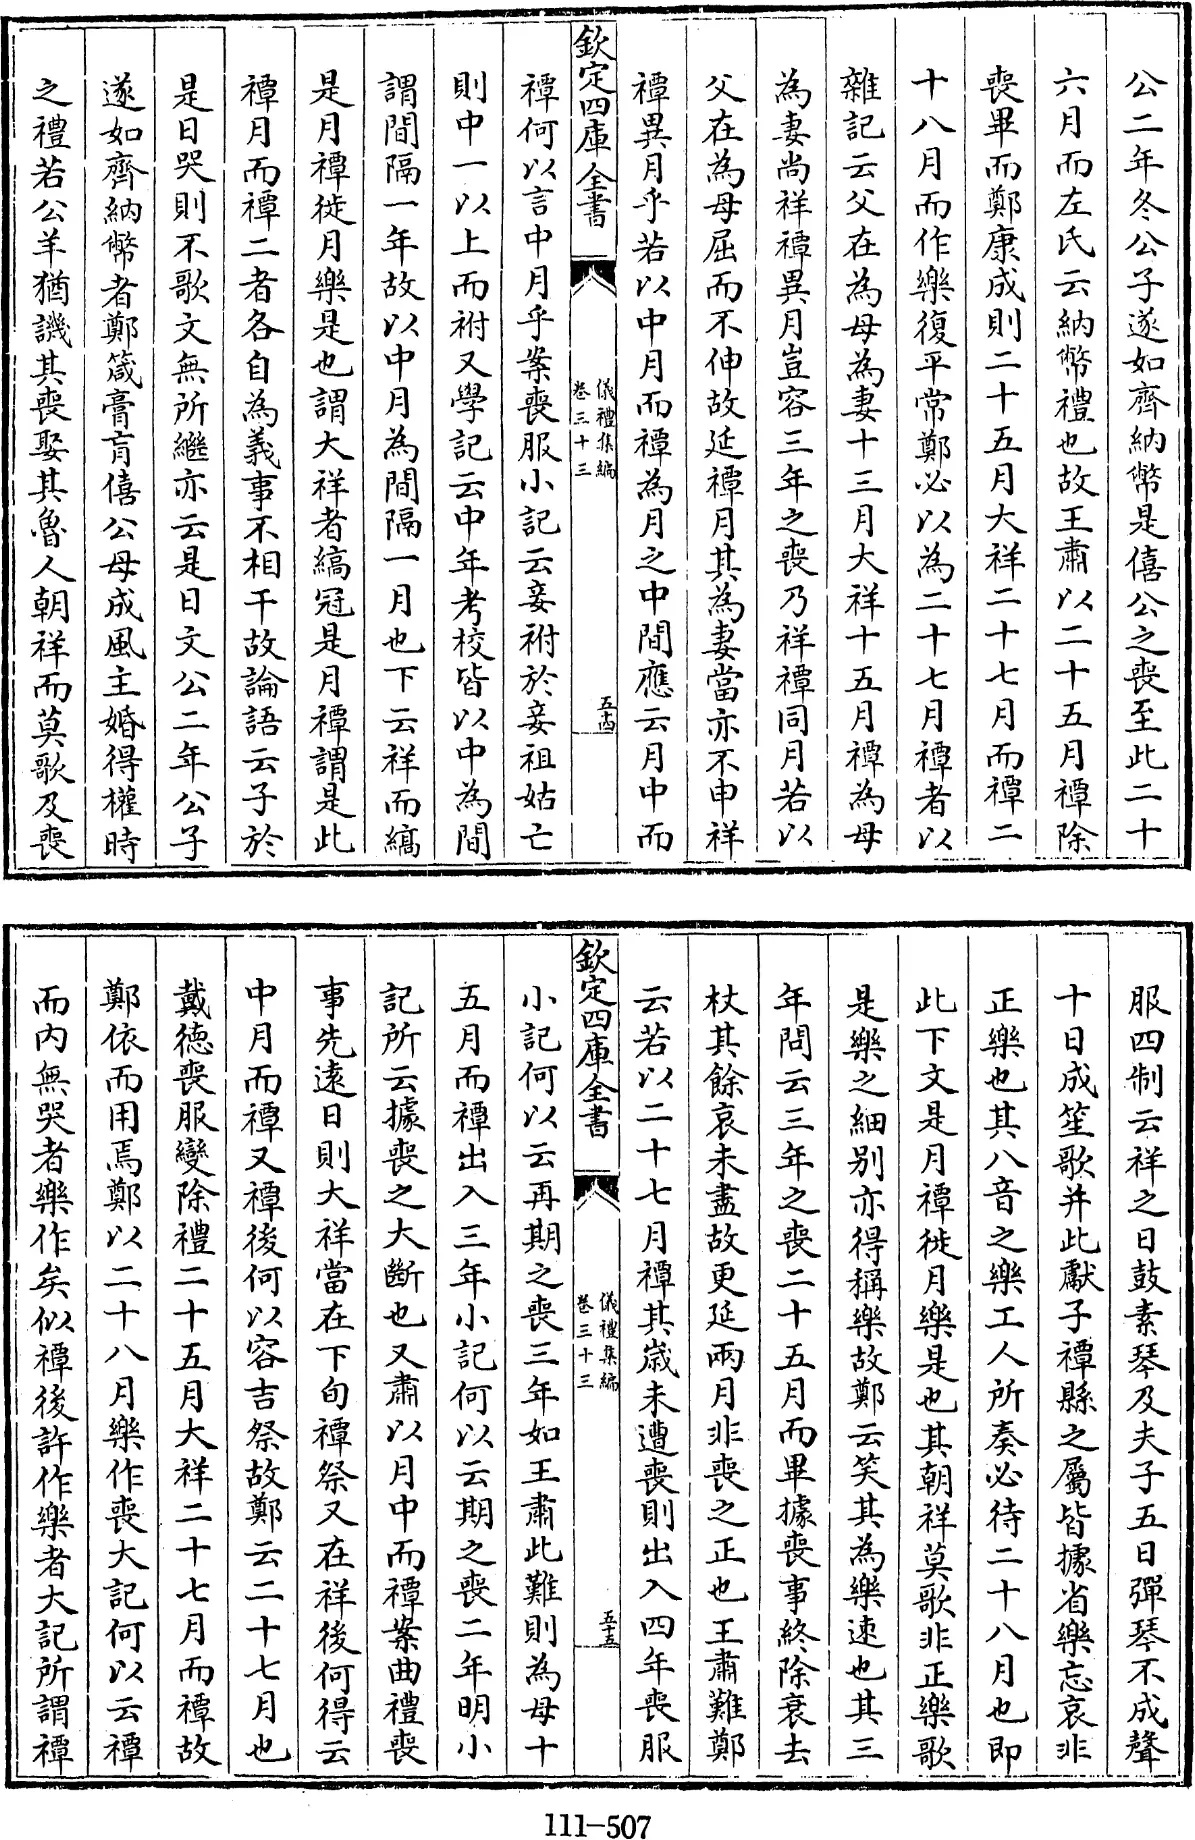 公二年冬公子遂如齊納幣是僖公之喪至此二十
六月而左氏云納幣禮也故王肅以二十五月禫除
喪畢而鄭康成則二十五月大祥二十七月而禫二
十八月而作樂復平常鄭必以為二十七月禫者以
雜記云父在為母為妻十三月大祥十五月禫為母
為妻尚祥禫異月豈容三年之喪乃祥禫同月若以
父在為母屈而不伸故延禫月其為妻當亦不申祥
禫異月乎若以中月而禫為月之中間應云月中而
欽定四庫全書
儀禮集編
卷三十三
五十四
禫何以言中月乎案喪服小記云妾祔於妾祖姑亡
則中一以上而祔又學記云中年考校皆以中為間
謂間隔一年故以中月為間隔一月也下云祥而縞
是月禫徙月樂是也謂大祥者縞冠是月禫謂是此
禫月而禫二者各自為義事不相干故論語云子於
是日哭則不歌文無所繼亦云是日文公二年公子
遂如齊納幣者鄭箴膏肓僖公母成風主婚得權時
之禮若公羊猶譏其喪娶其魯人朝祥而莫歌及喪
服四制云祥之日鼓素琴及夫子五日彈琴不成聲
十日成笙歌并此獻子禫縣之屬皆據省樂忘哀非
正樂也其八音之樂工人所奏必待二十八月也即
此下文是月禫徙月樂是也其朝祥莫歌非正樂歌
是樂之細别亦得稱樂故鄭云笑其為樂速也其三
年問云三年之喪二十五月而畢據喪事終除衰去
杖其餘哀未盡故更延兩月非喪之正也王肅難鄭
云若以二十七月禫其歲未遭喪則出入四年喪服
欽定四庫全書
儀禮集編
卷三十三
五十五
小記何以云再期之喪三年如王肅此難則為母十
五月而禫出入三年小記何以云期之喪二年明小
記所云據喪之大斷也又肅以月中而禫案曲禮喪
事先遠日則大祥當在下旬禫祭又在祥後何得云
中月而禫又禫後何以容吉祭故鄭云二十七月也
戴德喪服變除禮二十五月大祥二十七月而禫故
鄭依而用焉鄭以二十八月樂作喪大記何以云禫
而内無哭者樂作矣似禫後許作樂者大記所謂禫
111-507